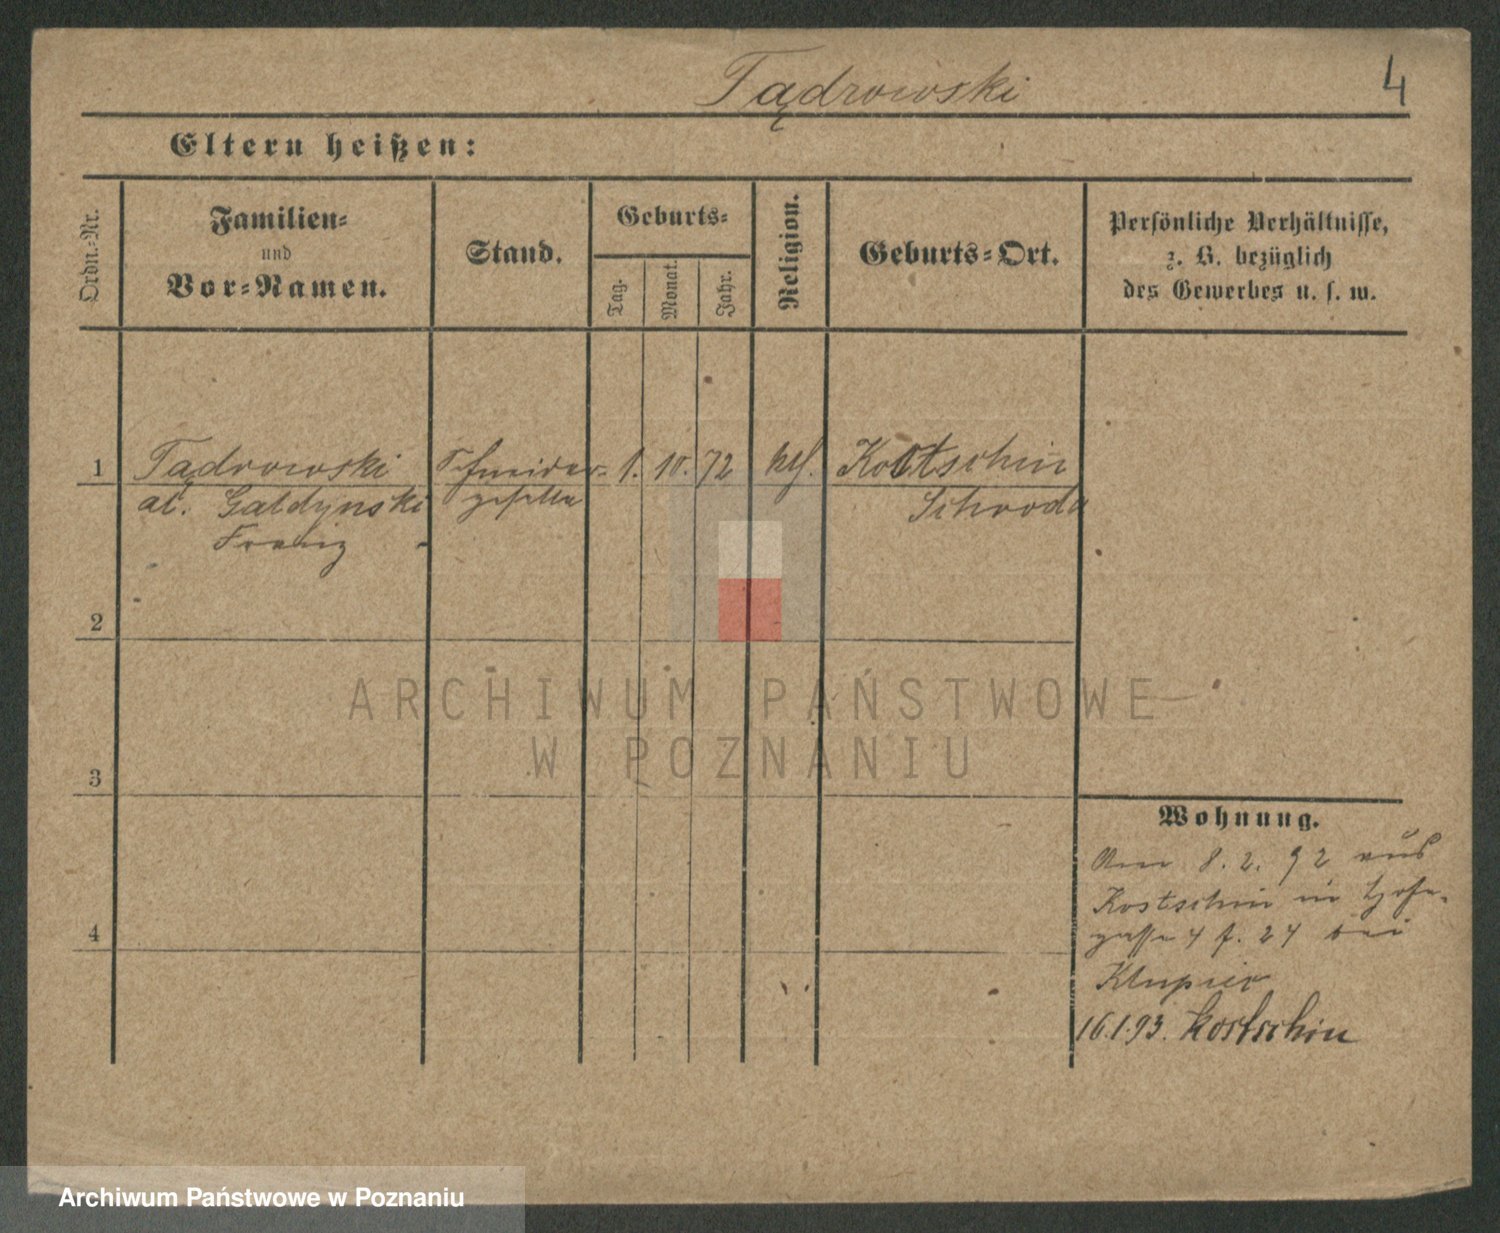 Tądrowski
4
Eltern heißen:
Ordn.-Nr.
Familien-
und
Vor-Namen.
Stand.
Geburts-
Tag.
Monat.
Jahr.
Religion.
Geburts-Ort.
Persönliche Verhältnisse,
z. B. bezüglich
des Gewerbes u. s. w.
1 Tądrowski Schneider- 1. 10. 72 kth. Kostschin
al. Galdynski geselle Schroda
Franz
2
ARCHIWUM PAŃSTWOWE
W POZNANIU
3
Wohnung.
Am 8. 2. 92 aus
Kostschin in
4
gasse 4 f. 24 bei
Klupier
16.1.93. Kostschin
Archiwum Państwowe w Poznaniu